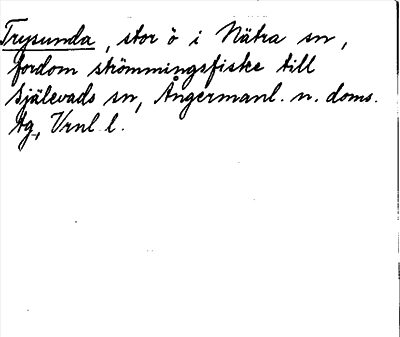 Trysunda, stor ö i Nätra sn,
fordom strömmingsfiske till
Själevads sn, Ångermanl. n. doms.
tg, Vrnl. l.